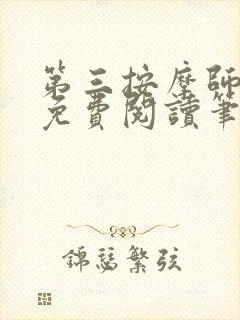 第三按摩師
免費閱讀筆
錦瑟繁弦